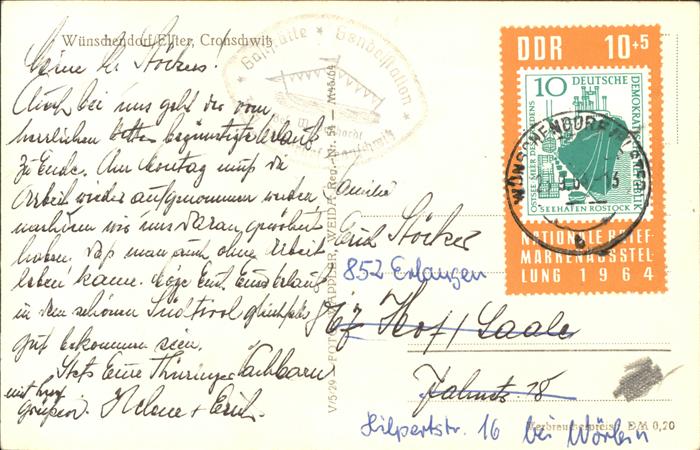 Wünschendorf/Elster, Cronschwitz
Meine lb. Stöckers!
Auch bei uns geht der vom
herrlichen Wetter begünstigte Urlaub
zu Ende. Am Montag muß die
Arbeit wieder aufgenommen werden,
nachdem wir uns daran gewöhnt
haben, daß man auch ohne Arbeit
leben kann. Möge Euch Euer Urlaub
in dem schönen Südtirol gleichfalls
gut bekommen sein.
Stets Eure Thüringer Nachbarn
mit herzl.
Grüßen. Helene + Erich.
Gaststätte * Gondelstation *
V/5/29 FOTO WEIDA Reg.-Nr. 54 — M46/64
DDR 10+5
10 DEUTSCHE
DEMOKRATISCHE REPUBLIK
OSTSEE MEER DES FRIEDENS
SEEHAFEN ROSTOCK
NATIONALE BRIEF-
MARKENAUSSTEL-
LUNG 1964
WÜNSCHENDORF (ELSTER)
b
Familie
Erich Stöcker
852 Erlangen
Hof/Saale
Jahnstr. 18
Hilpertstr. 16 bei
Verbraucherpreis: DM 0,20